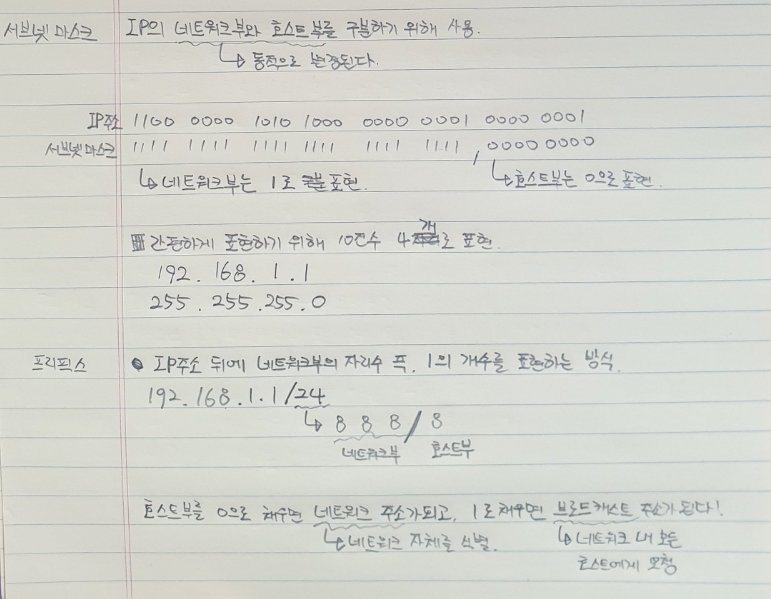 서브넷 마스크 IP의 네트워크부와 호스트부를 구분하기 위해 사용.
↳ 동적으로 변경된다.
IP주소 1100 0000 1010 1000 0000 0001 0000 0001
서브넷마스크 1111 1111 1111 1111 1111 1111 , 0000 0000
↳ 네트워크부는 1로 표현. ↳ 호스트부는 0으로 표현.
간편하게 표현하기 위해 10진수 4개로 표현.
192.168.1.1
255.255.255.0
프리픽스 IP주소 뒤에 네트워크부의 자리수 즉, 1의 개수를 표현하는 방식.
192.168.1.1/24
↳ 8 8 8 / 8
네트워크부 호스트부
호스트부를 0으로 채우면 네트워크 주소가되고, 1로채우면 브로드캐스트 주소가 된다!
↳ 네트워크 자체를 식별. ↳ 네트워크 내 모든
호스트에게 요청